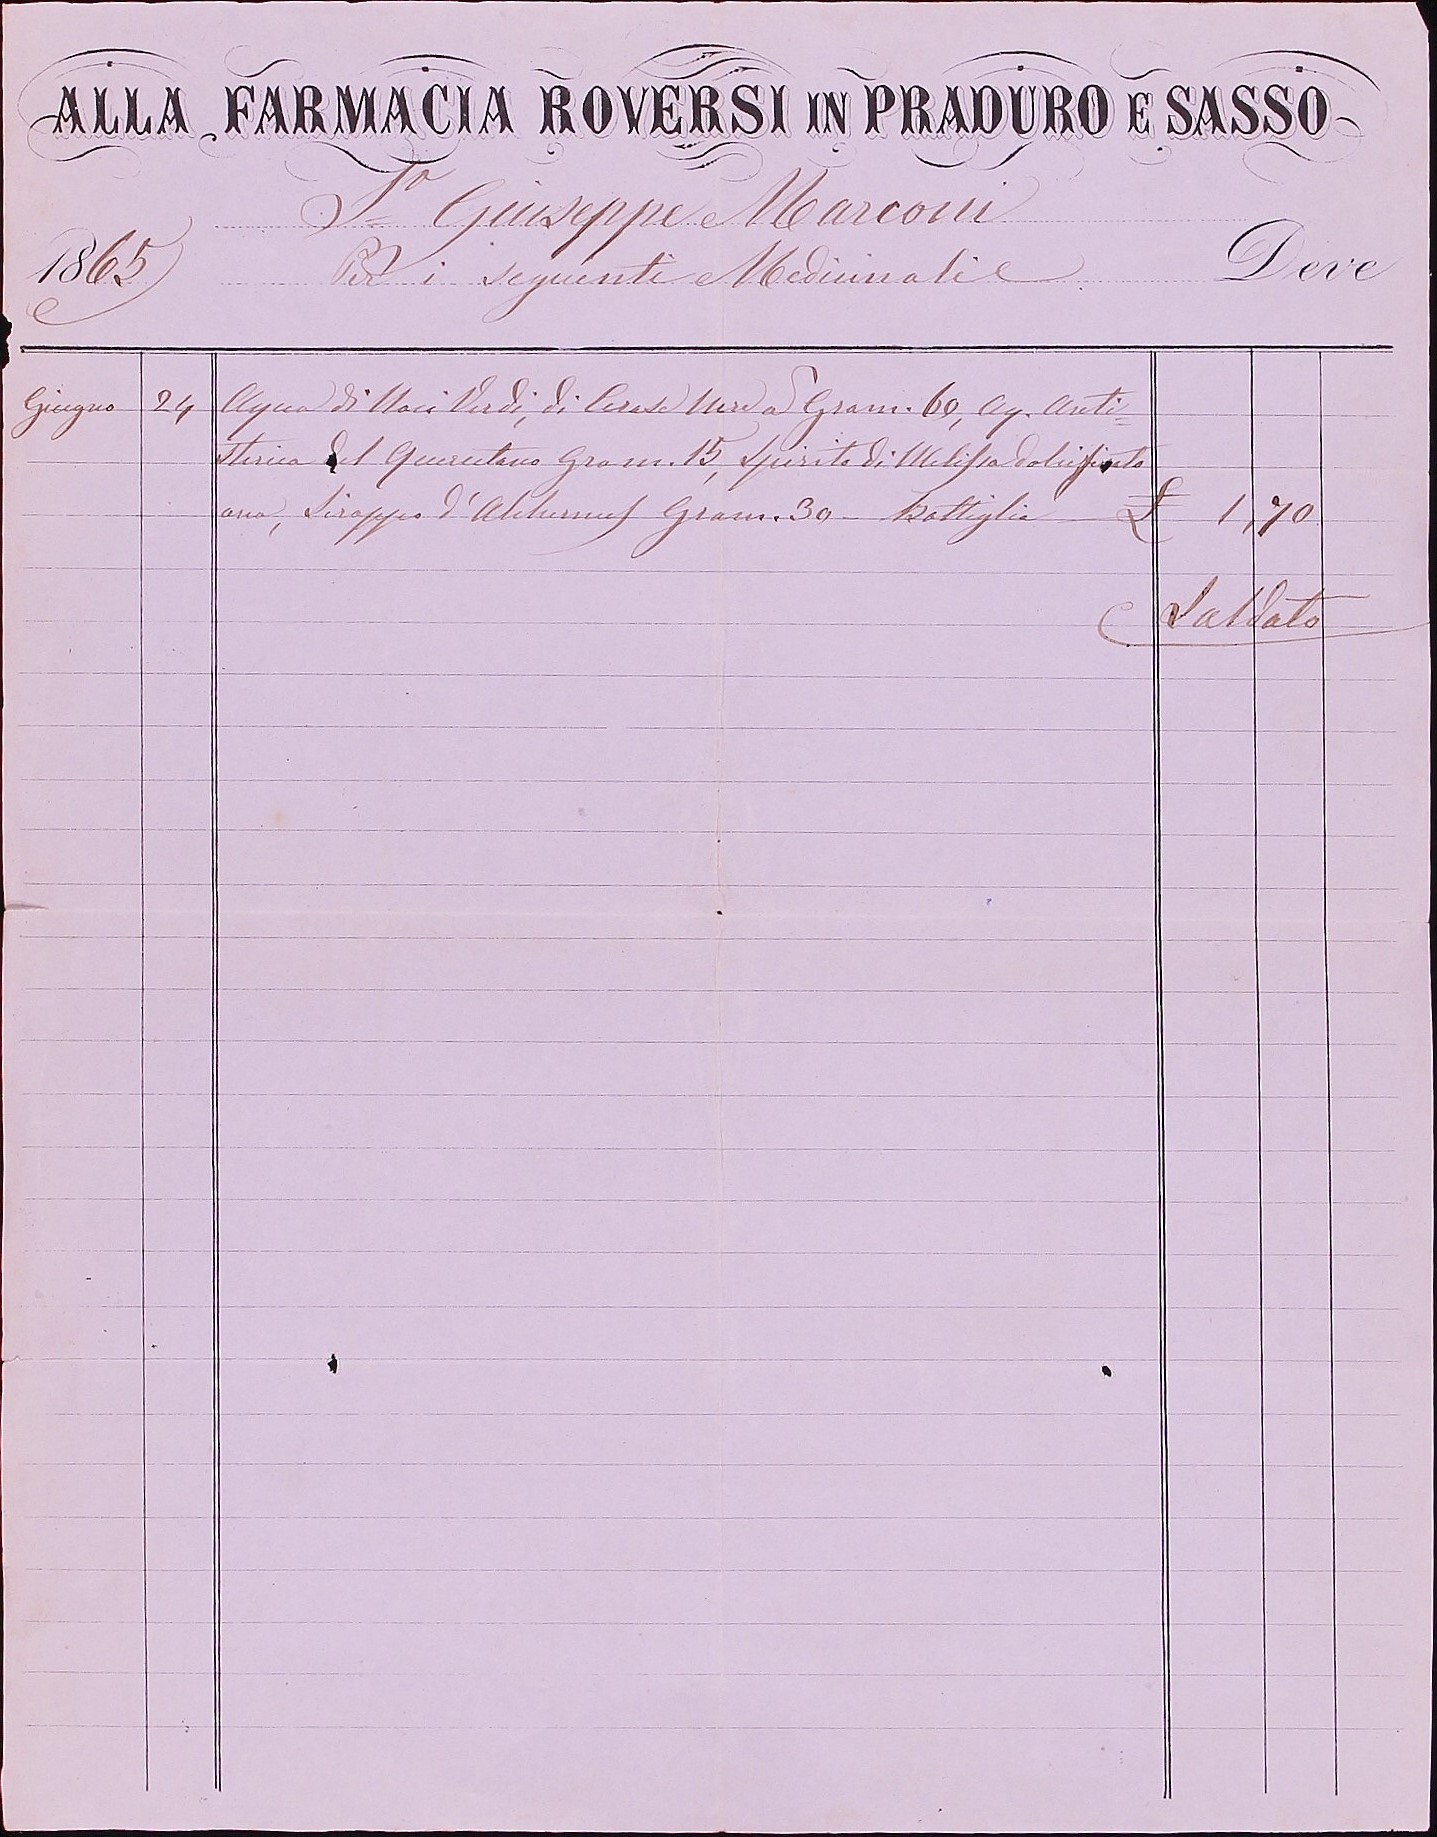 ALLA FARMACIA ROVERSI IN PRADURO E SASSO
Sr Giuseppe Marconi
1865 Per i seguenti Medicinali Deve
Giugno 24 Acqua di Noci Verdi, di Cerase Nere a Gram. 60, Aq. Anti=
sterica del Quercetano Gram. 15, Spirito di Melissa
ana, Siroppo d'Alchermes Gram. 30 Bottiglia £ 1,70
Saldato